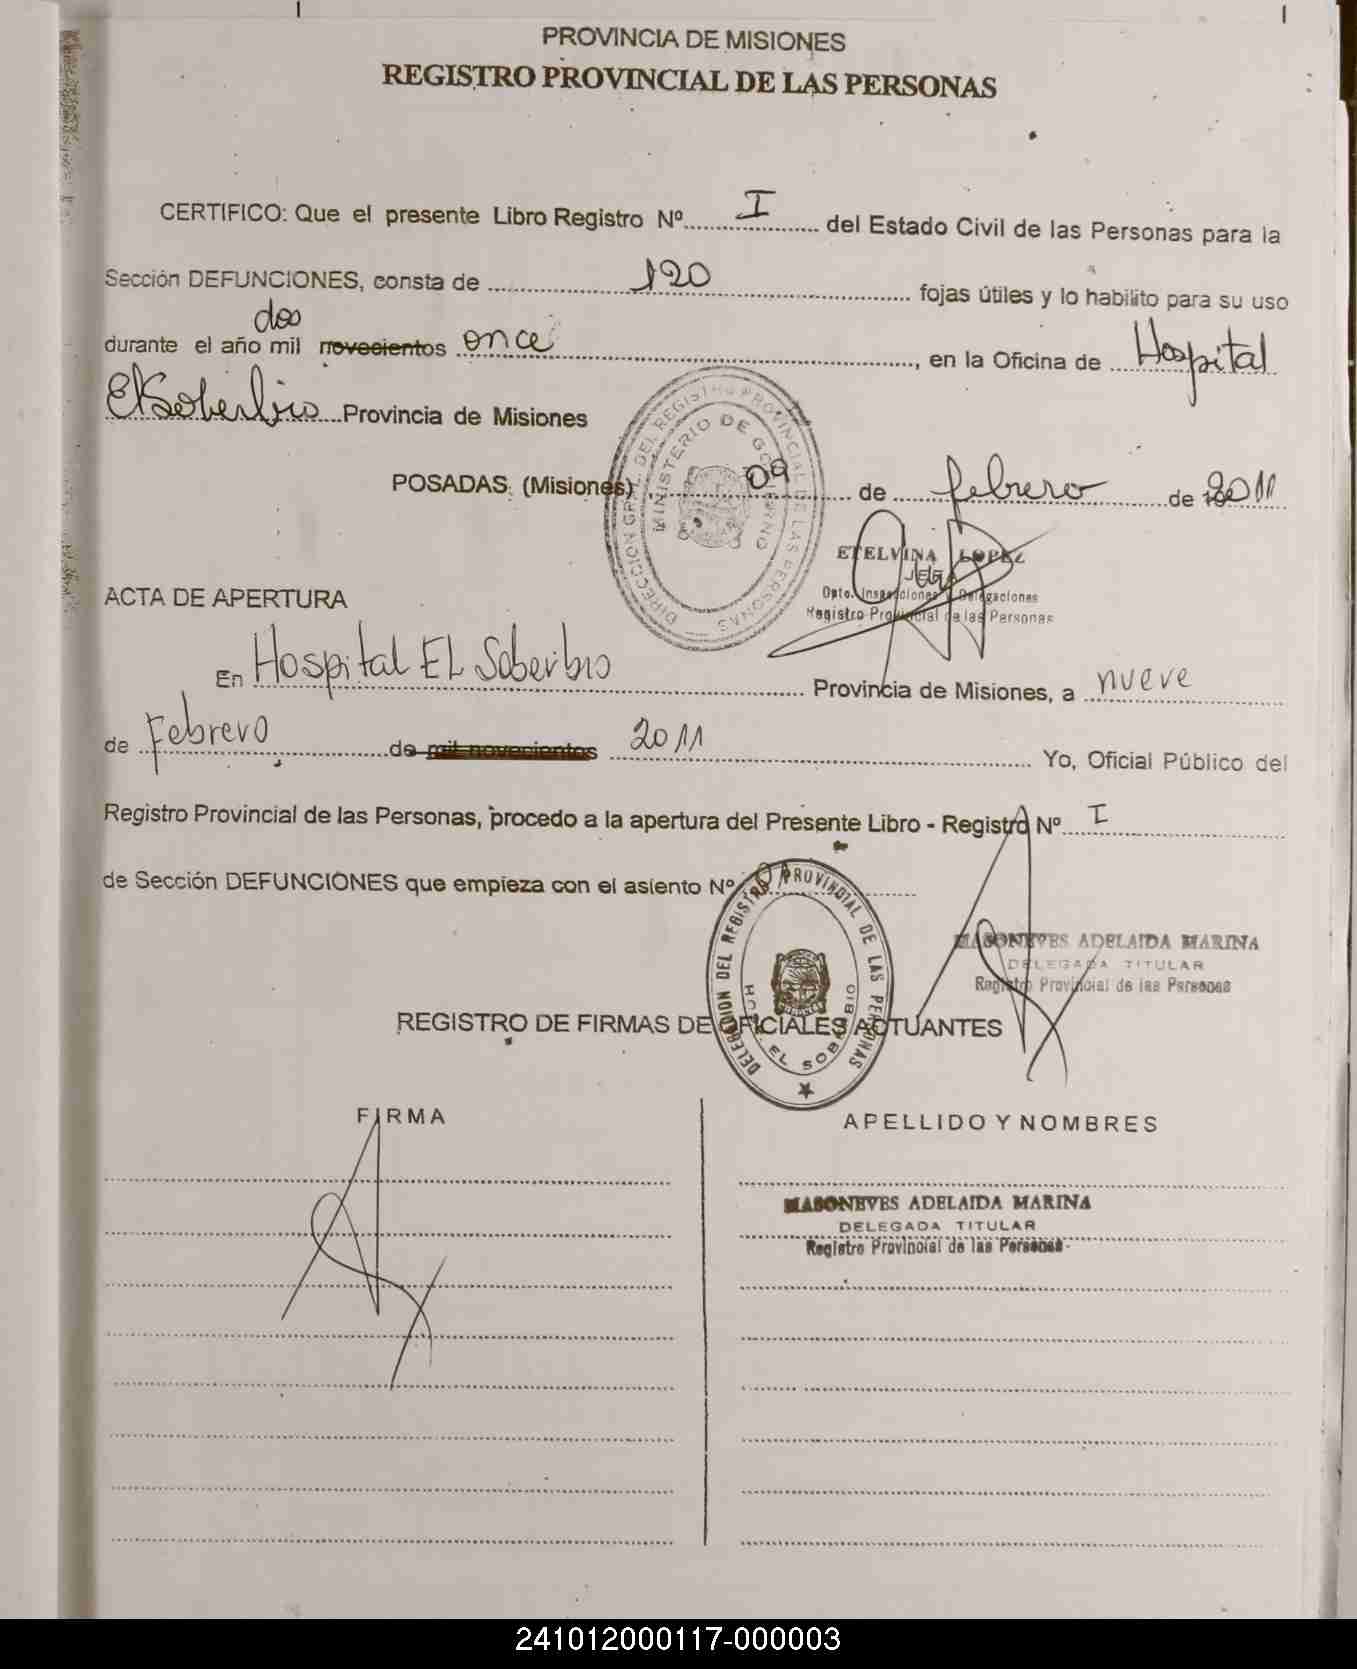 PROVINCIA DE MISIONES
REGISTRO PROVINCIAL DE LAS PERSONAS
CERTIFICO: Que el presente Libro Registro Nº I del Estado Civil de las Personas para la
Sección DEFUNCIONES, consta de 120 fojas útiles y lo habilito para su uso
dos
durante el año mil novecientos once, en la Oficina de Hospital
El Soberbio Provincia de Misiones
POSADAS, (Misiones) 09 de febrero de 2011
DIRECCION GRAL. DEL REGISTRO PROVINCIAL DE LAS PERSONAS
MINISTERIO DE GOBIERNO
ETELVINA LOPEZ
JEFA
Dpto. Inspecciones y Delegaciones
Registro Provincial de las Personas
ACTA DE APERTURA
En Hospital EL Soberbio Provincia de Misiones, a nueve
de Febrero de mil novecientos 2011 Yo, Oficial Público del
Registro Provincial de las Personas, procedo a la apertura del Presente Libro - Registro Nº I
de Sección DEFUNCIONES que empieza con el asiento Nº 01
DELEGACION DEL REGISTRO PROVINCIAL DE LAS PERSONAS
EL SOBERBIO
MASONEVES ADELAIDA MARINA
DELEGADA TITULAR
Registro Provincial de las Personas
REGISTRO DE FIRMAS DE OFICIALES ACTUANTES
FIRMA APELLIDO Y NOMBRES
MASONEVES ADELAIDA MARINA
DELEGADA TITULAR
Registro Provincial de las Personas
241012000117-000003